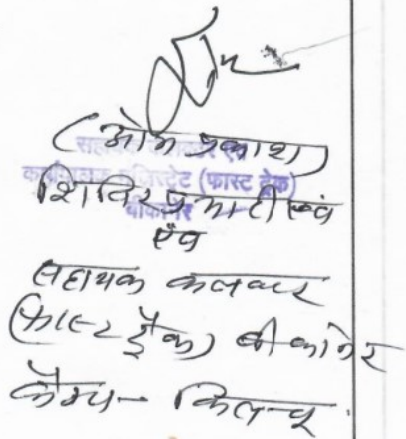 (ओम प्रकाश)
सहायक कलक्टर एवं
कार्यपालक मजिस्ट्रेट (फास्ट ट्रेक)
बीकानेर
शिविर प्रभारी एवं
एवं
सहायक कलक्टर
(फास्ट ट्रैक) बीकानेर
कैम्प-